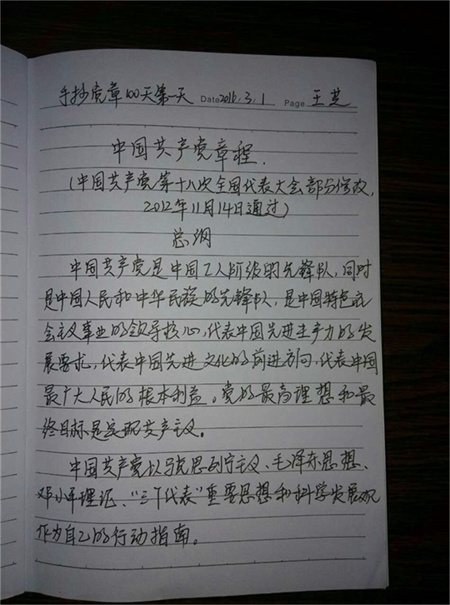 手抄党章100天第一天 Date 2016.3.1 Page 王芝
中国共产党章程.
(中国共产党第十八次全国代表大会部分修改,
2012年11月14日通过)
总纲
中国共产党是中国工人阶级的先锋队,同时
是中国人民和中华民族的先锋队,是中国特色社
会主义事业的领导核心,代表中国先进生产力的发
展要求,代表中国先进文化的前进方向,代表中国
最广大人民的根本利益。党的最高理想和最
终目标是实现共产主义。
中国共产党以马克思列宁主义、毛泽东思想、
邓小平理论、“三个代表”重要思想和科学发展观
作为自己的行动指南。